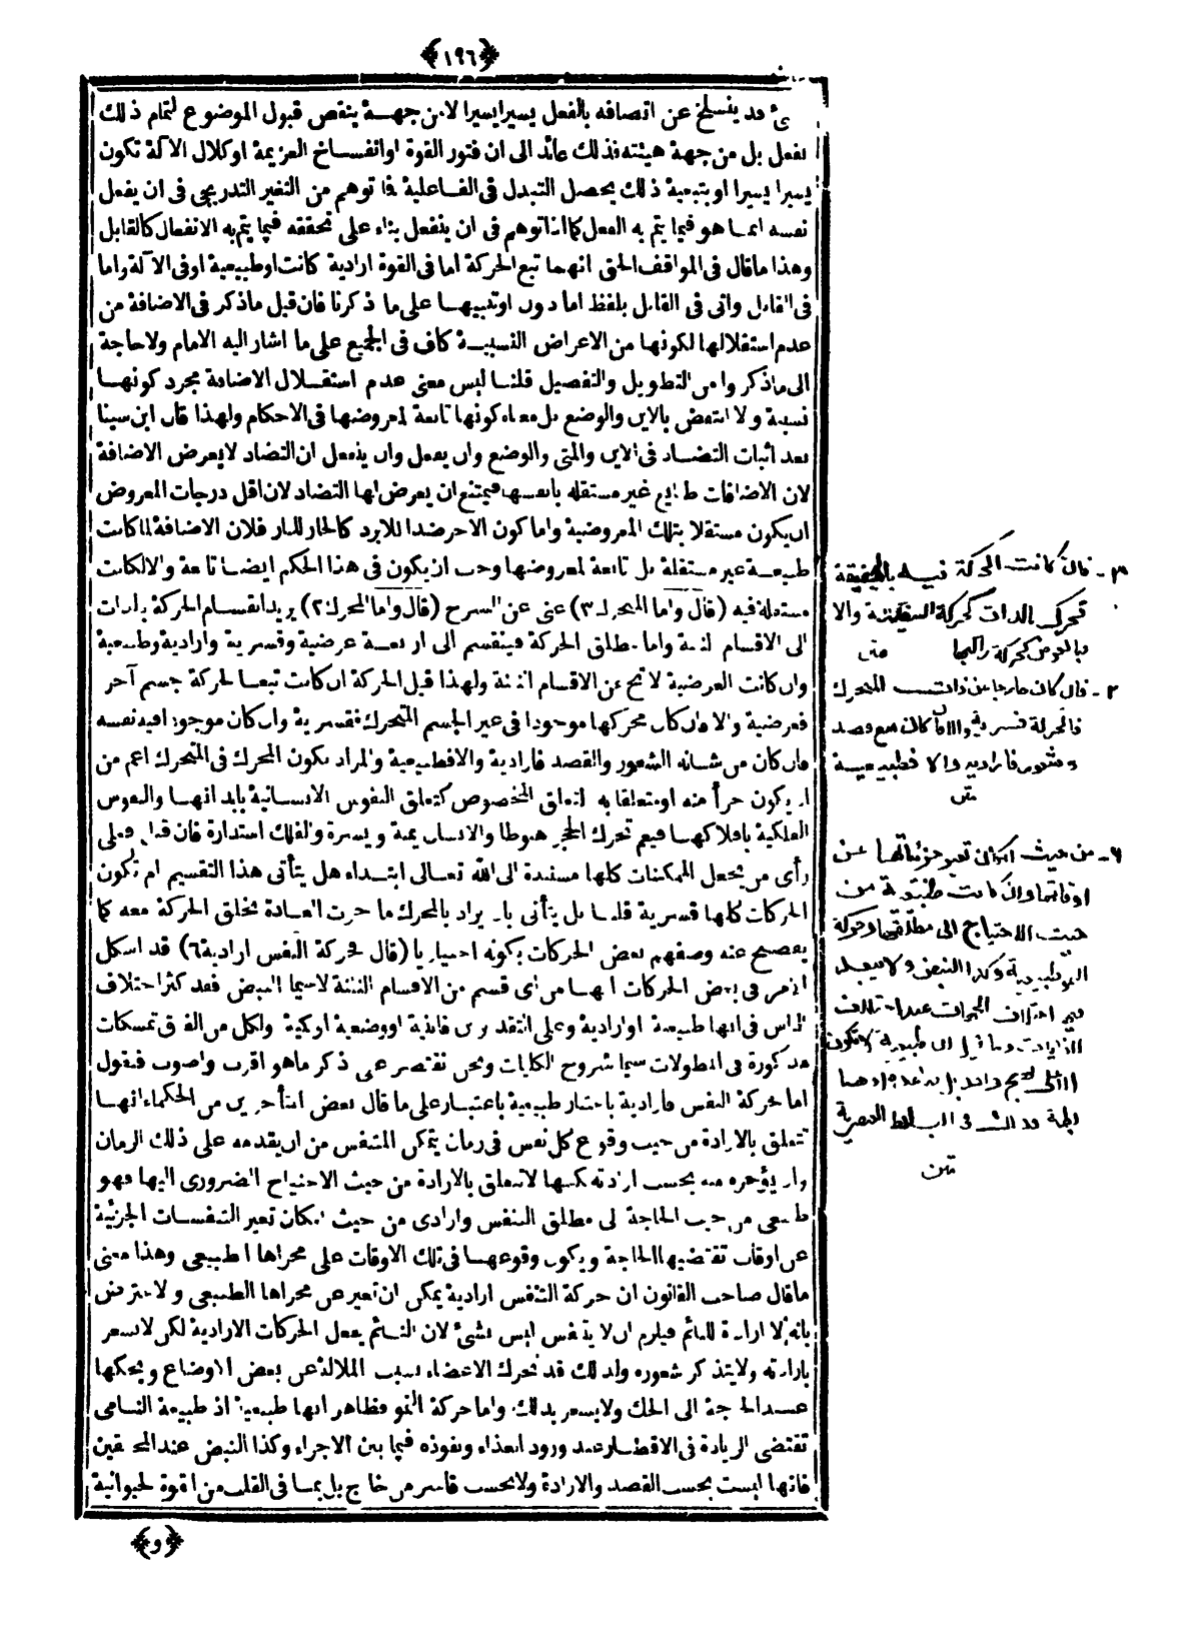 ﴿١٩٦﴾
ئ قد ينسلخ عن اتصافه بالفعل يسيرا يسيرا لا من جهة ينقص قبول الموضوع لتمام ذلك
الفعل بل من جهة هيئته فذلك عائد الى ان فتور القوة او انفساخ العزيمة او كلال الآلة تكون
يسيرا يسيرا او بتبعية ذلك يحصل التبدل فى الفاعلية فا توهم من التغير التدريجى فى ان يفعل
نفسه انما هو فيما يتم به الفعل كما اذا توهم فى ان ينفعل بناء على تحققه فيما يتم به الانفعال كالقابل
وهذا ما قال فى المواقف الحق انهما تبع الحركة اما فى القوة ارادية كانت او طبيعية او فى الآلة واما
فى القابل واتى فى القابل بلفظ اما دون او تنبيها على ما ذكرنا فان قيل ما ذكر فى الاضافة من
عدم استقلالها لكونها من الاعراض النسبية كاف فى الجميع على ما اشار اليه الامام ولا حاجة
الى ما ذكروا من التطويل والتفصيل قلنا ليس معنى عدم استقلال الاضافة مجرد كونها
نسبية ولا انتقض بالاين والوضع بل معناه كونها تابعة لمعروضها فى الاحكام ولهذا قال ابن سينا
بعد اثبات التضاد فى الاين والمتى والوضع وان يفعل وان ينفعل ان التضاد لا يعرض الاضافة
لان الاضافات طبايع غير مستقلة بانفسها فيمتنع ان يعرض لها التضاد لان اقل درجات المعروض
ان يكون مستقلا بتلك المعروضية واما كون الاحر ضدا للابرد كالحار للبارد فلان الاضافة لما كانت
طبيعة غير مستقلة بل تابعة لمعروضها وجب ان يكون فى هذا الحكم ايضا تابعة والا لكانت
مستقلة فيه (قال واما المتحرك ٣) غنى عن الشرح (قال واما المحرك ٢) يريد انقسام الحركة بالذات
الى الاقسام الثلثة واما مطلق الحركة فينقسم الى اربعة عرضية وقسرية وارادية وطبيعية
وان كانت العرضية لا تخ عن الاقسام الثلثة ولهذا قيل الحركة ان كانت تبعا لحركة جسم آخر
فعرضية والا فان كان محركها موجودا فى غير الجسم المتحرك فقسرية وان كان موجودا فيه نفسه
فان كان من شانه الشعور والقصد فارادية والا فطبيعية والمراد بكون المحرك فى المتحرك اعم من
ان يكون جزأ منه او متعلقا به التعلق المخصوص كتعلق النفوس الانسانية بابدانها والنفوس
الفلكية بافلاكها فيعم تحرك الحجر هبوطا والانسان يمنة ويسرة والفلك استدارة فان قيل فعلى
رأى من يجعل الممكنات كلها مستندة الى الله تعالى ابتداء هل يتأتى هذا التقسيم ام تكون
الحركات كلها قسرية قلنا بل يتأتى بان يراد بالمحرك ما جرت العادة بخلق الحركة معه كما
يفصح عنه وصفهم بعض الحركات بكونه اختياريا (قال فحركة النفس ارادية ٦) قد اشكل
الامر فى بعض الحركات انها من اى قسم من الاقسام الثلثة لاسيما النبض فقد كثر اختلاف
الناس فى انها طبيعية او ارادية وعلى التقديرين فاينية او وضعية او كمية ولكل من الفرق تمسكات
مذكورة فى المطولات سيما شروح الكليات ونحن نقتصر على ذكر ما هو اقرب واصوب فنقول
اما حركة النفس فارادية باعتبار طبيعية باعتبار على ما قال بعض المتأخرين من الحكماء انها
تتعلق بالارادة من حيث وقوع كل نفس فى زمان يتمكن المتنفس من ان يقدمه على ذلك الزمان
وان يؤخره منه بحسب ارادته لكنها لا تتعلق بالارادة من حيث الاحتياج الضرورى اليها فهو
طبيعى من حيث الحاجة الى مطلق التنفس وارادى من حيث امكان تغير التنفسات الجزئية
عن اوقات تقتضيها الحاجة ويكون وقوعها فى تلك الاوقات على مجراها الطبيعى وهذا معنى
ما قال صاحب القانون ان حركة التنفس ارادية يمكن ان تغير عن مجراها الطبيعى والاعتراض
بانه لا ارادة للنائم فيلزم ان لا يتنفس ليس بشئ لان النائم يفعل الحركات الارادية لكن لا يشعر
بارادته ولا يتذكر شعوره ولذلك قد تحرك الاعضاء بسبب الملالة عن بعض الاوضاع ويحكها
عند الحاجة الى الحك ولا يشعر بذلك واما حركة النمو فظاهر انها طبيعية اذ طبيعة النامى
تقتضى الزيادة فى الاقطار عند ورود الغذاء ونفوذه فيما بين الاجزاء وكذا النبض عند المحققين
فانها ليست بحسب القصد والارادة ولا بحسب قاسر من خارج بل بما فى القلب من القوة الحيوانية
﴿و﴾
٣- فان كانت الحركة فيه بالحقيقة
تحرك بالذات كحركة السفينة والا
فبالعرض كحركة راكبها متن
٢- فان كان خارجا عن ذات المتحرك
فالحركة قسرية والا فان كان مع قصد
وشعور فارادية والا فطبيعية
متن
٦- من حيث امكان تغير جزئياتها عن
اوقاتها وان كانت طبيعية من
حيث الاحتياج الى مطلقها وحركة
النمو طبيعية وكذا النبض ولا يبعد
فيه اختلاف الجهات عند اختلاف
الغايات وما قيل ان الطبيعية لا تكون
الا الى جهة واحدة بل صاعدة او هابطة
انما هو فى البسائط العنصرية
متن